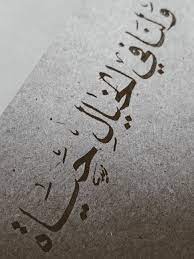 وَلَنَا فِي الخَيَالِ حَيَاة